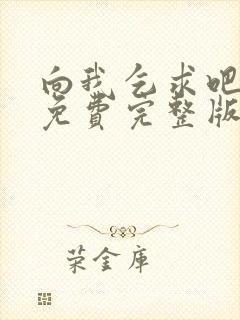 向我乞求吧
免費完整版
荣金庫